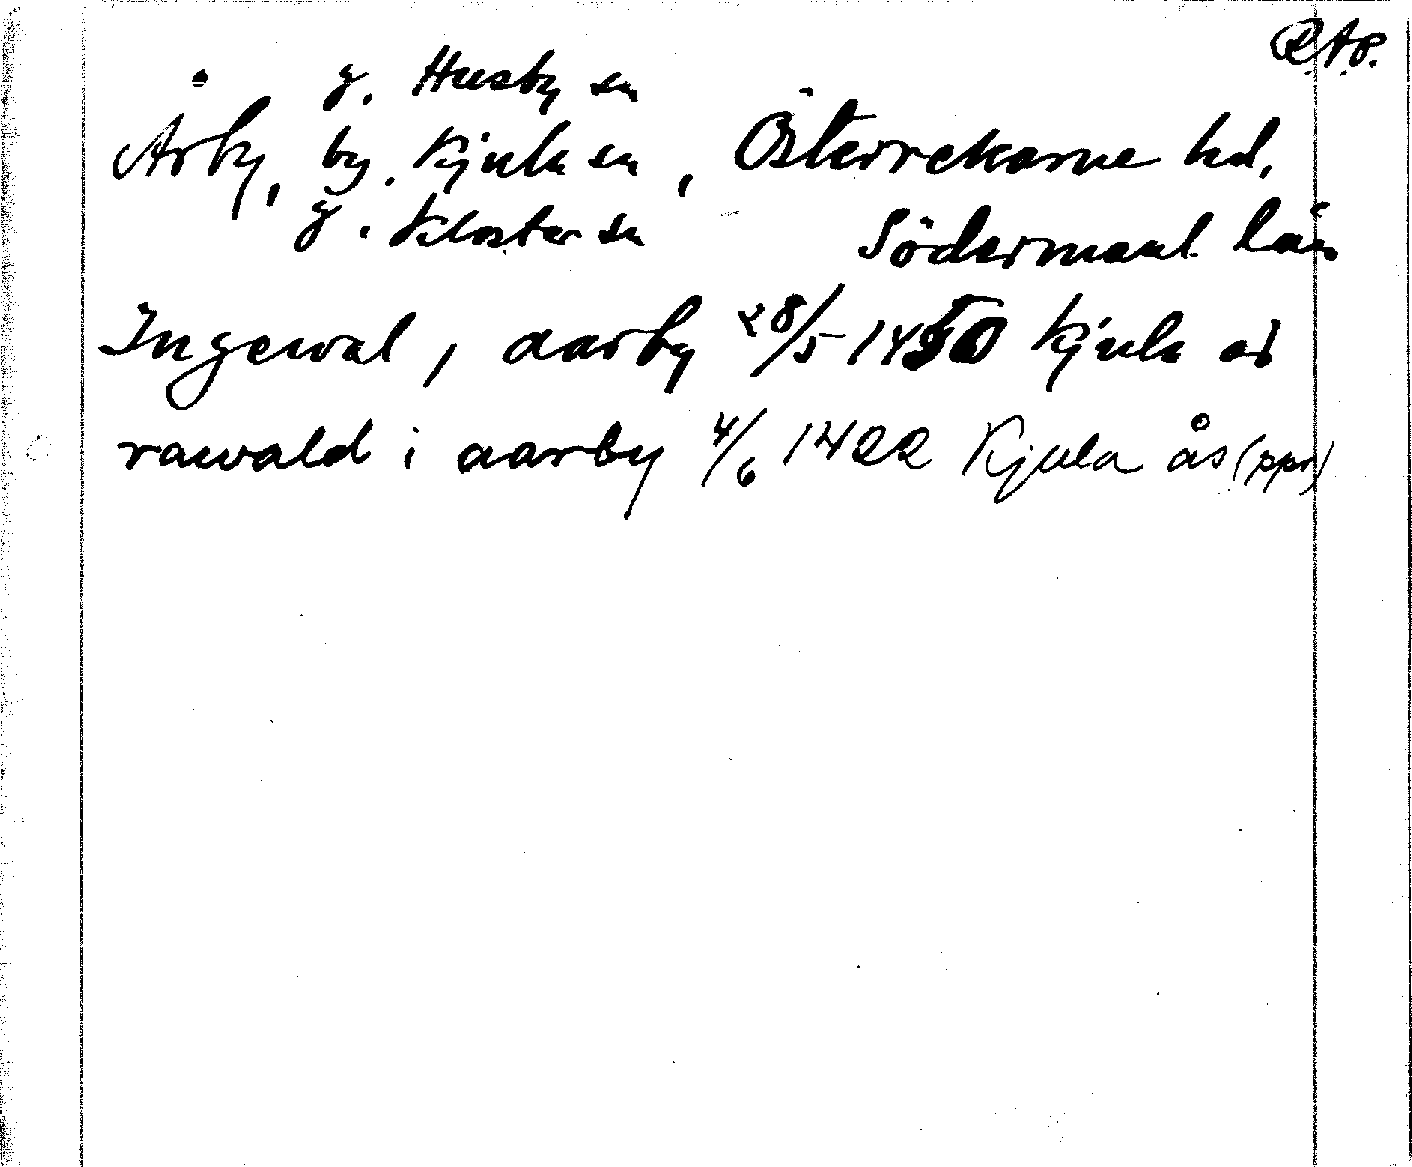 RAP.
g. Husby sn
Årby, by. Kjula sn, Österrekarne hd,
g. Kloster sn
Södermanl. län
Ingewal, aarby 28/5 1450 Kjula ås
rawald i aarby 4/6 1422 Kjula ås (ppr)